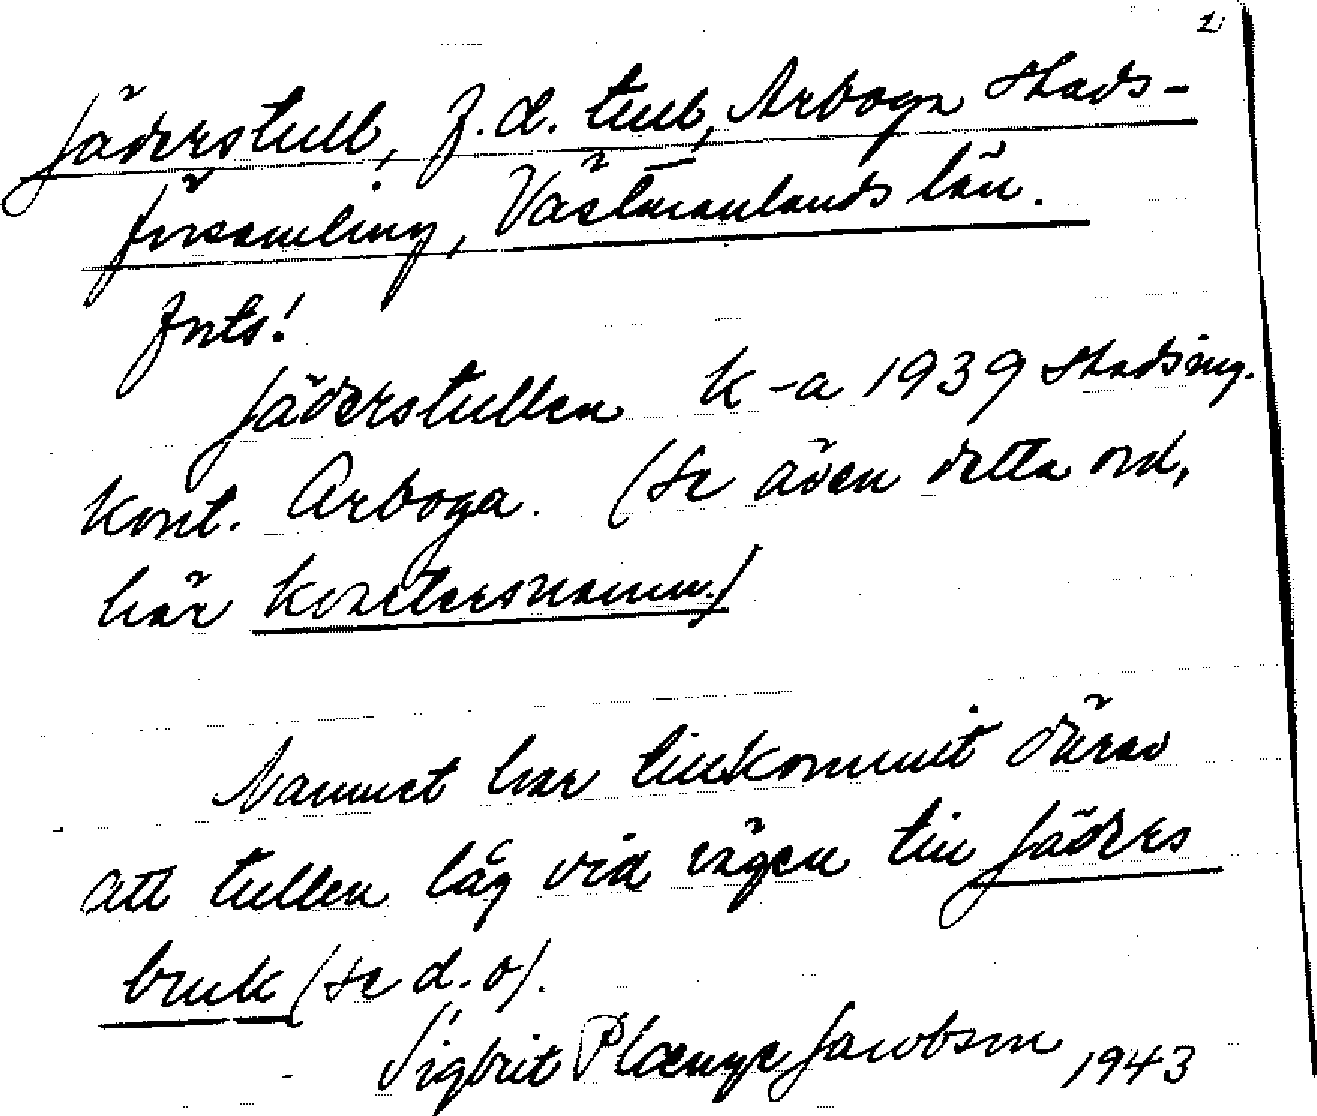 2
Jäderstull, f.d. tull, Arboga stads-
församling, Västmanlands län.
Forts!
Jäderstullen k-a 1939 Stadsing.
kont. Arboga. (Se även detta ord,
här kvartersnamn)
Namnet har tillkommit därav
att tullen låg vid vägen till Jäders
bruk (se d.o).
Sigbrit Plænge Jacobson 1943